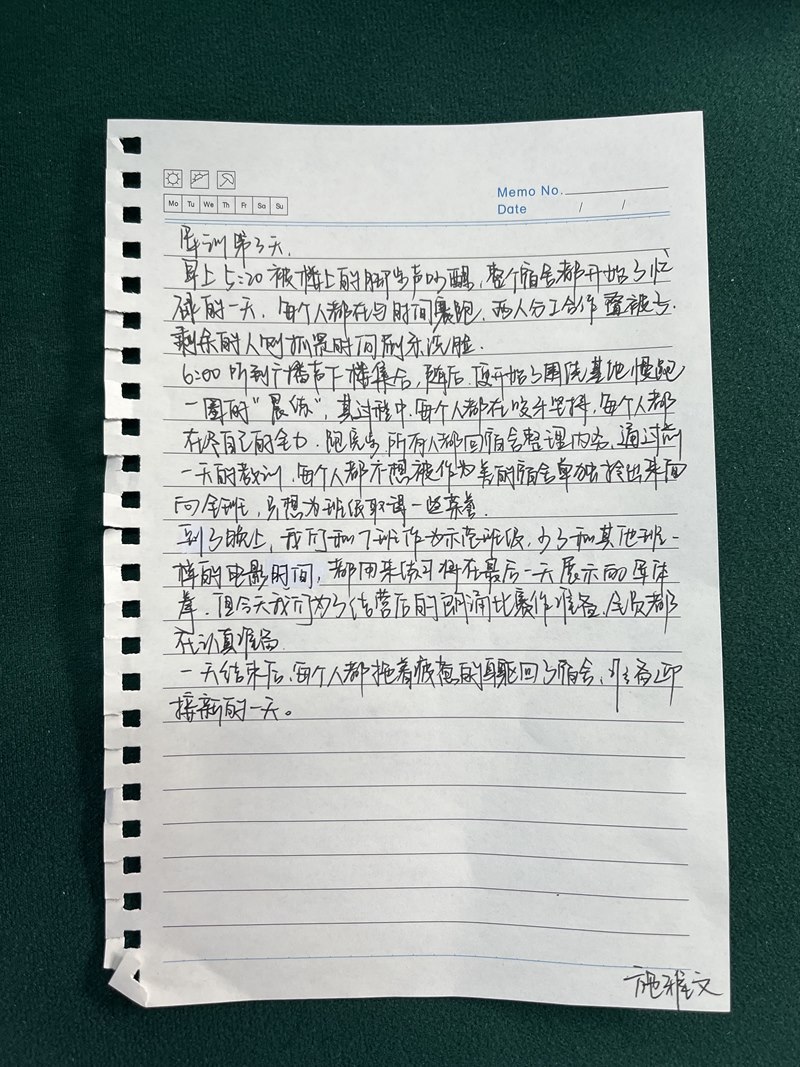 Memo No.
Mo Tu We Th Fr Sa Su
Date / /
军训第3天.
早上5:20被楼上的脚步声吵醒,整个宿舍都开始了忙
碌的一天,每个人都在与时间赛跑,两人分工合作叠被子.
剩余的人则抓紧时间刷牙洗脸.
6:00听到广播声下楼集合,随后,便开始了围绕基地慢跑
一圈的"晨练",其过程中,每个人都在咬牙坚持,每个人都
在尽自己的全力.跑完步所有人都回宿舍整理内务,通过前
一天的教训,每个人都不想被作为差的宿舍单独拎出来面
向全班,只想为班级取得一些荣誉.
到了晚上,我们和7班作为示范班级,少了和其他班一
样的电影时间,都用来练习将在最后一天展示的军体
拳,但今天我们为了结营后的朗诵比赛作准备,全员都
在认真准备.
一天结束后,每个人都拖着疲惫的身躯回了宿舍,准备迎
接新的一天。
施雅文